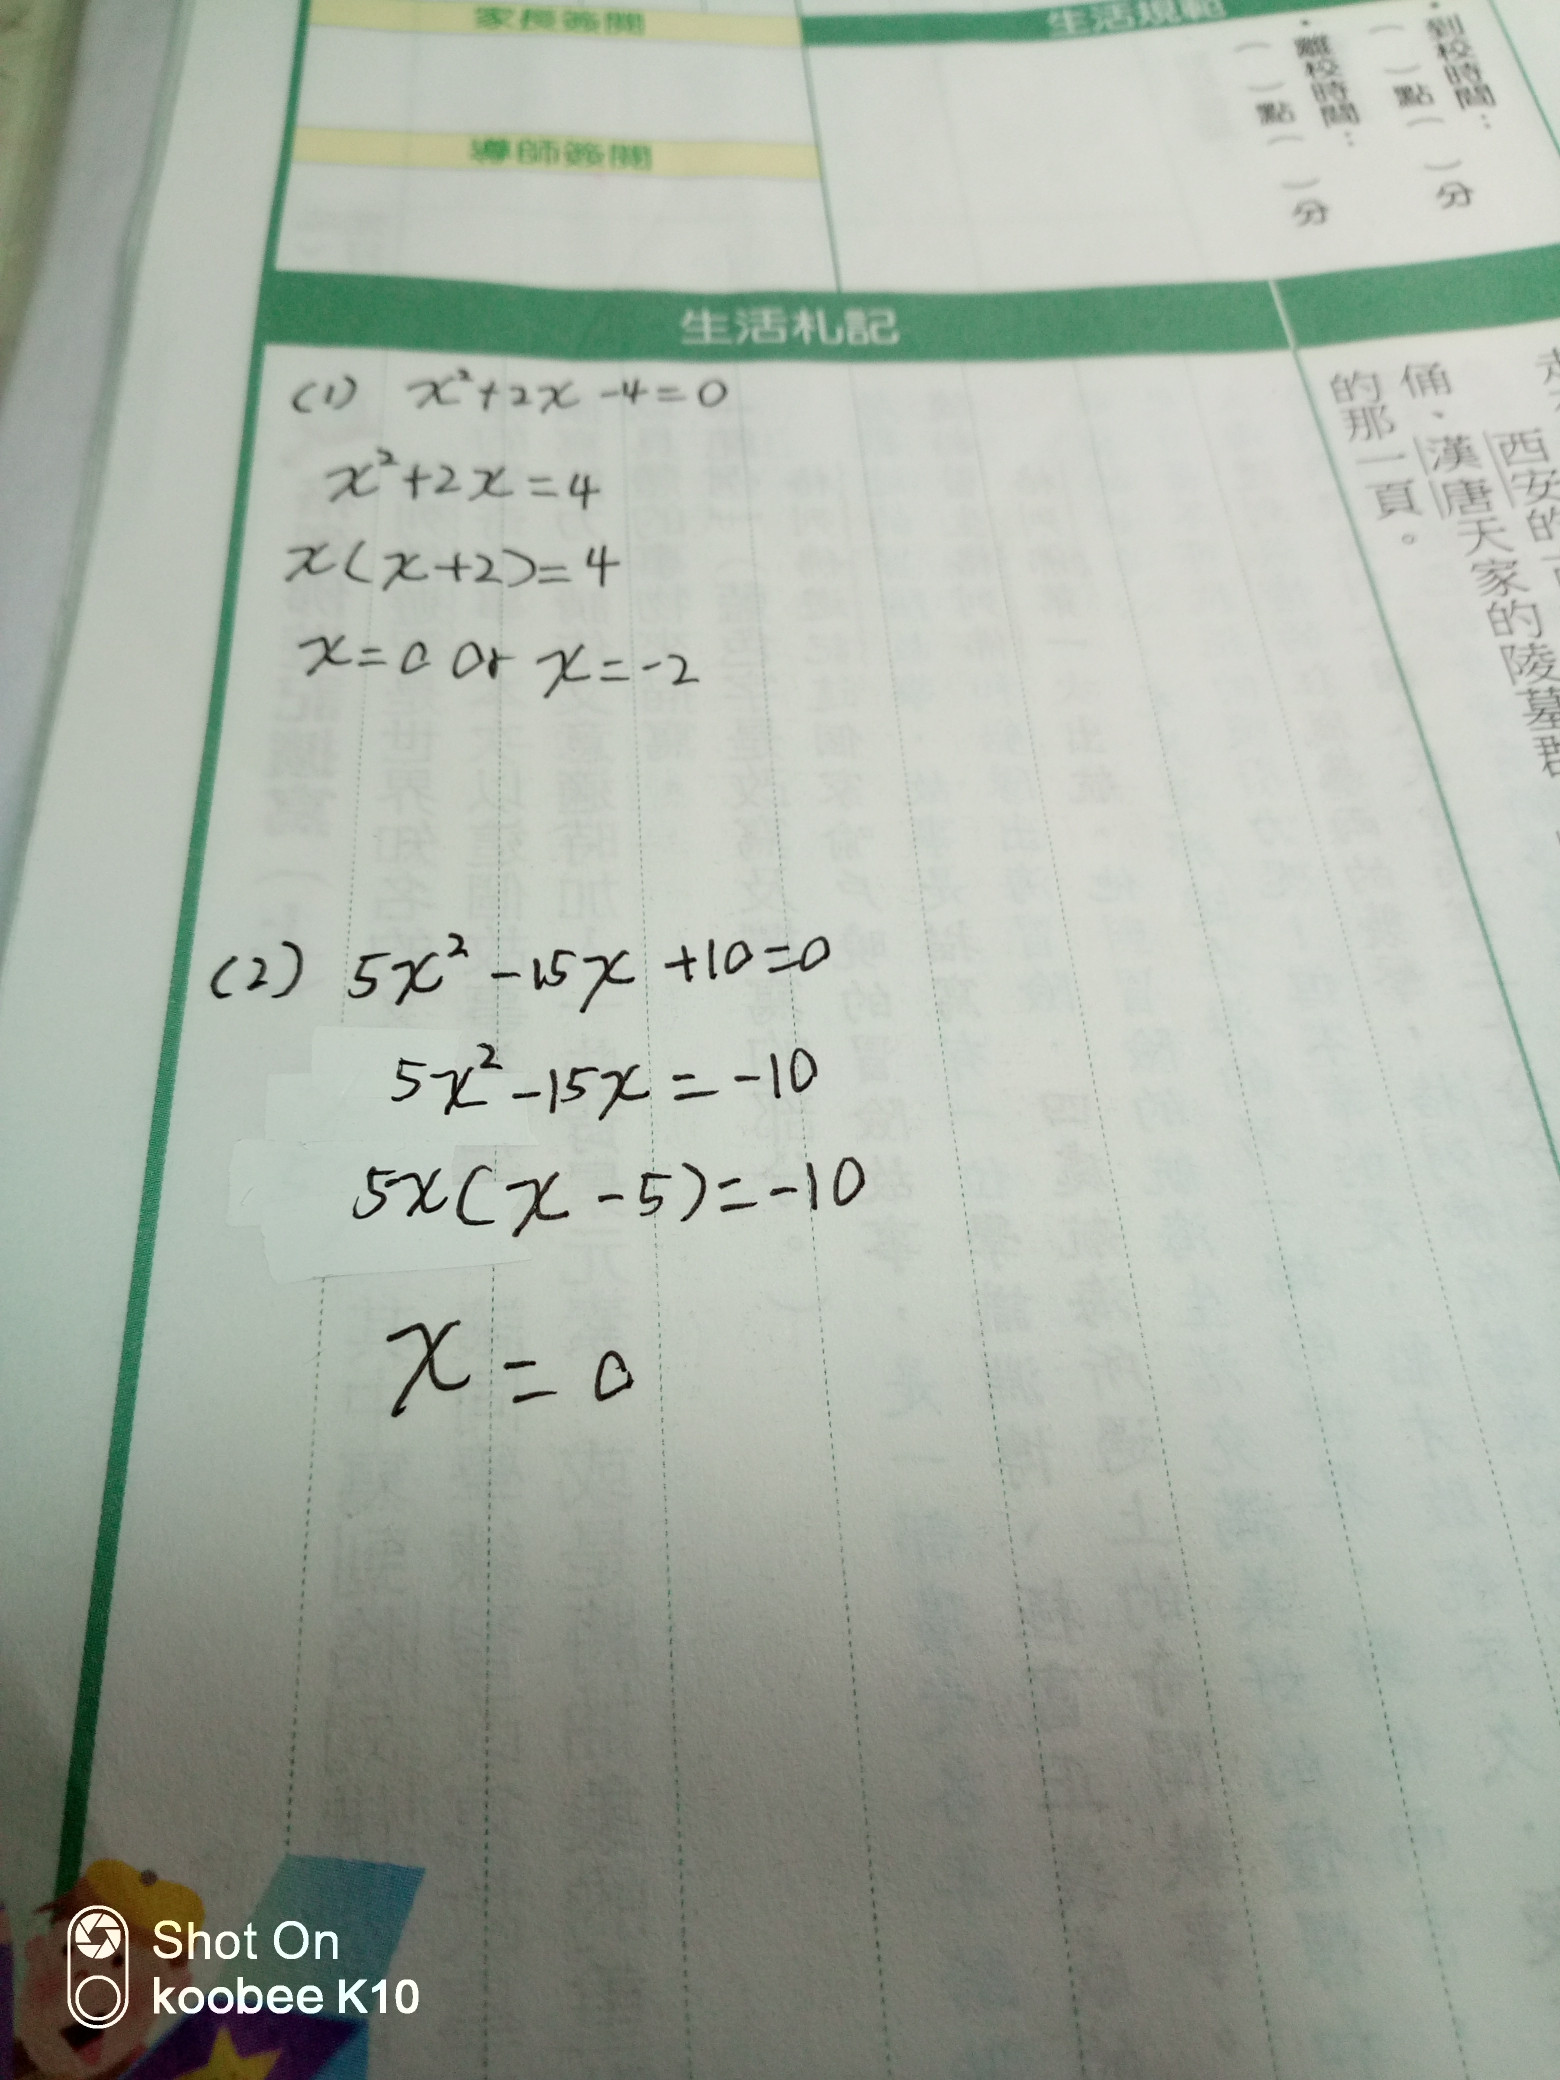 家長簽閱
生活規範
・到校時間：
（ ）點（ ）分
・離校時間：
（ ）點（ ）分
導師簽閱
生活札記
(1) x²+2x-4=0
x²+2x=4
x(x+2)=4
x=0 or x=-2
(2) 5x²-15x+10=0
5x²-15x=-10
5x(x-5)=-10
x=0
西安的
俑、漢唐天家的陵墓群
的那一頁。
Shot On
koobee K10